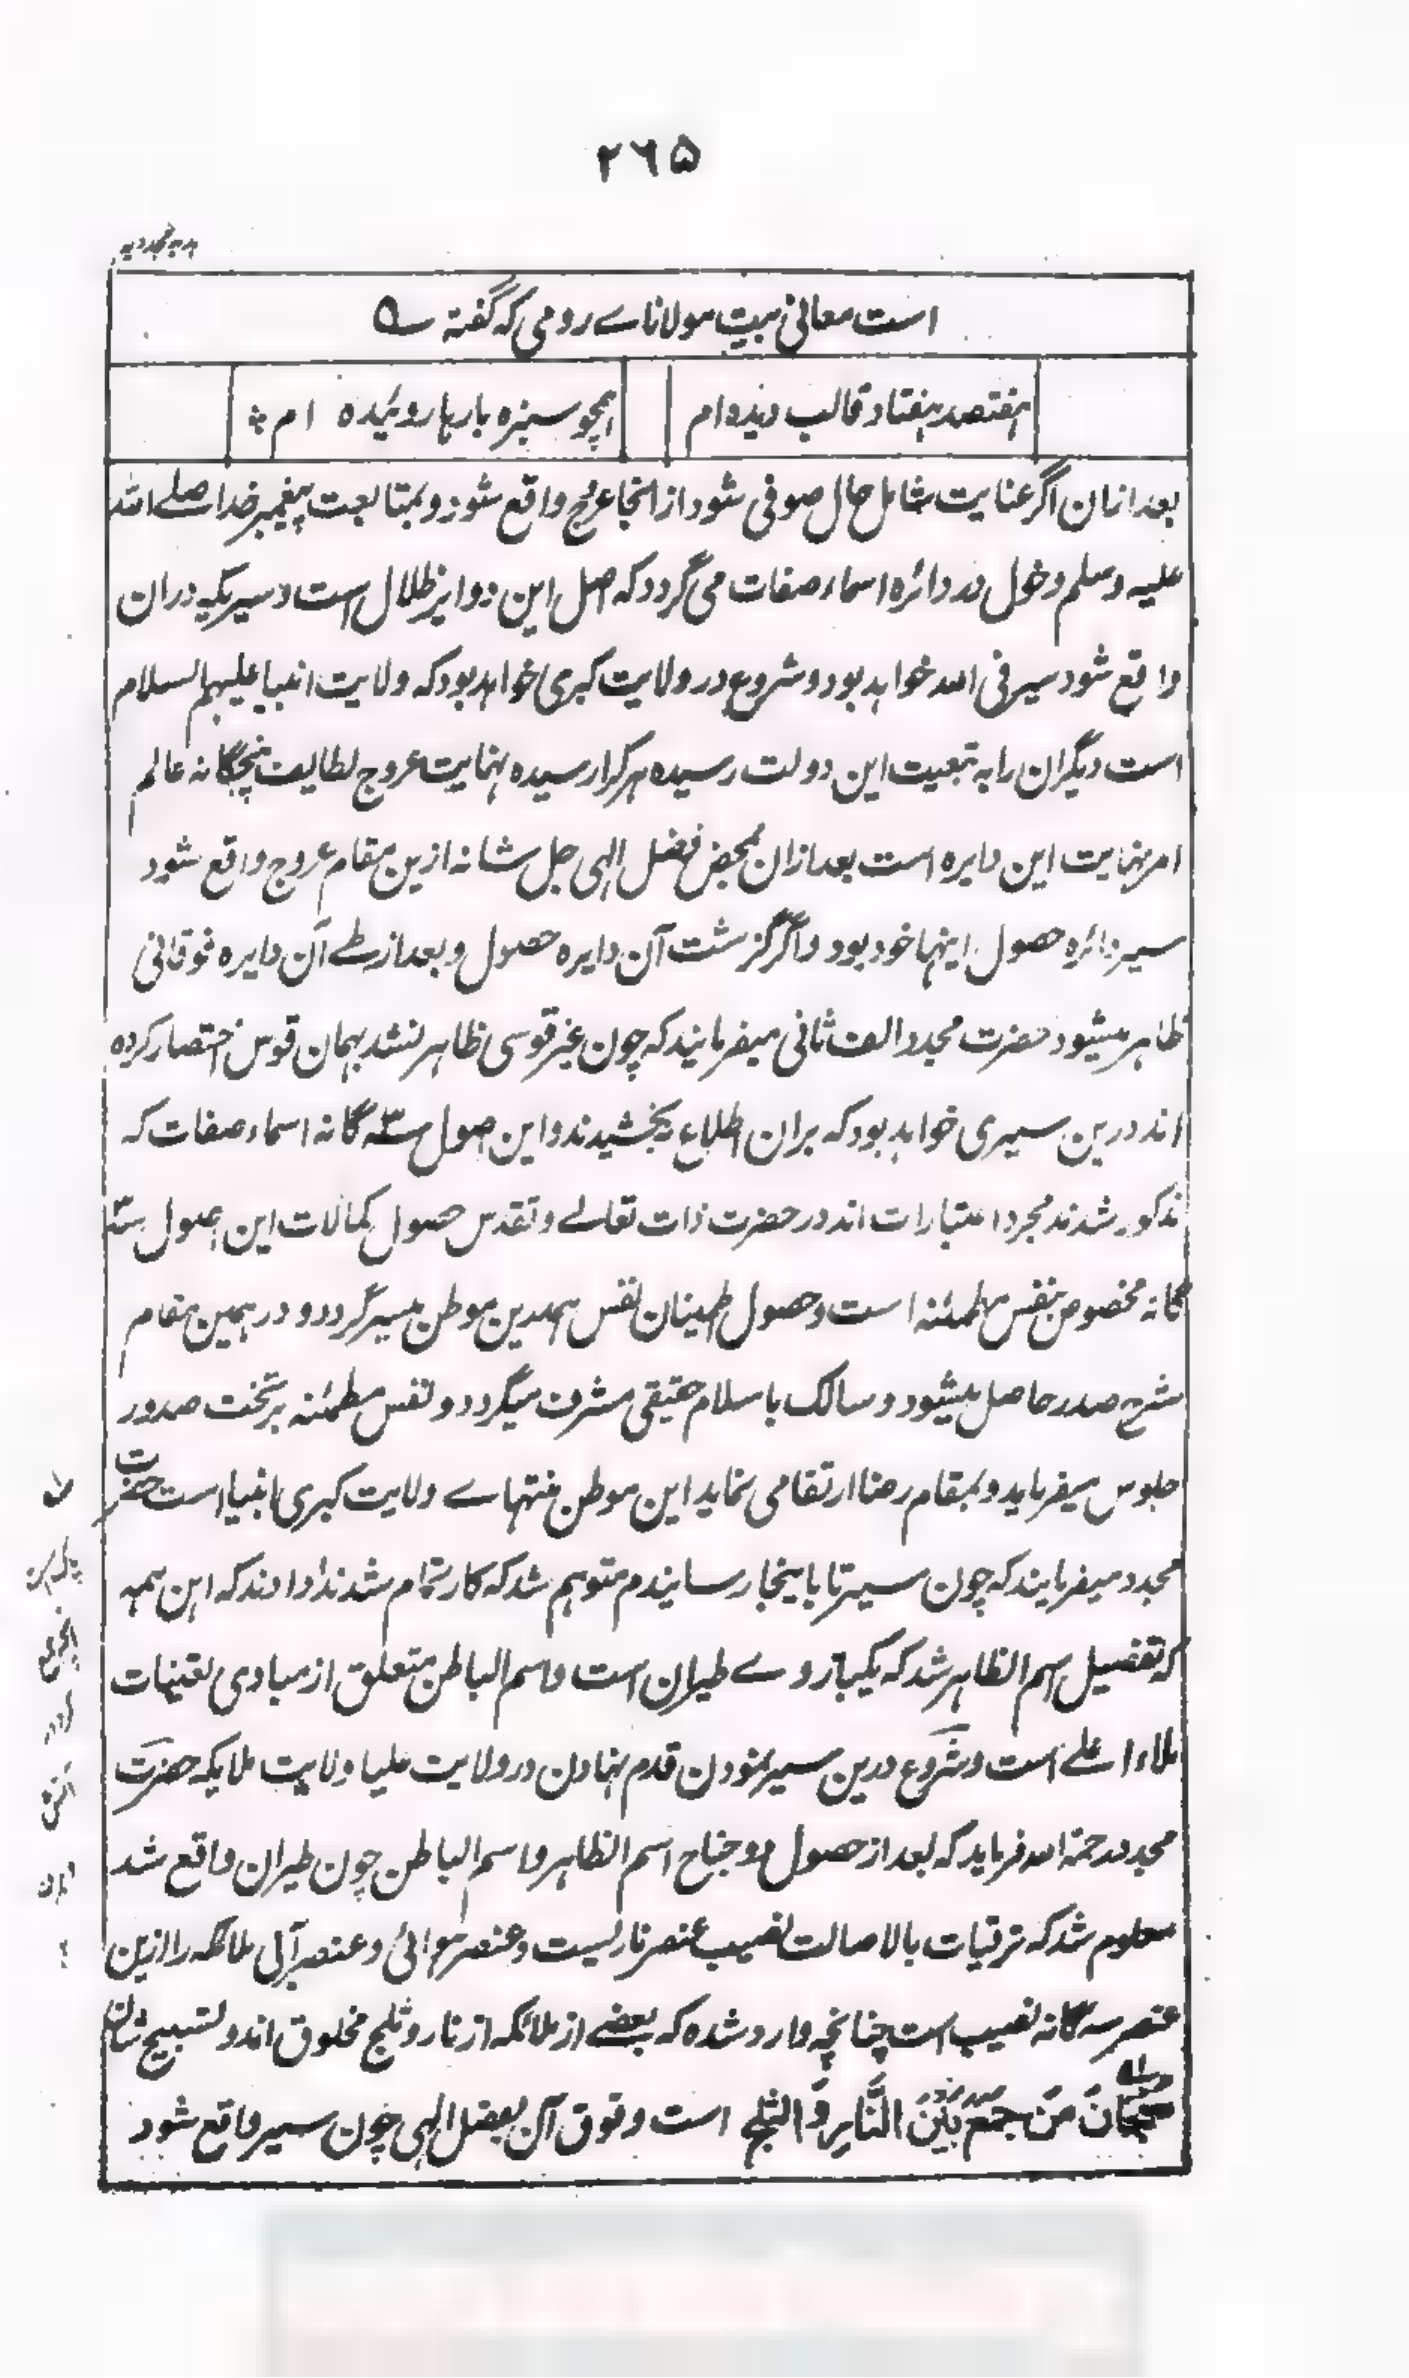 ۲۶۵
است معانی بیت مولانا‌ے رومی که گفته ؎
هفتصد هفتاد قالب دیده ام همچو سبزه بارها روئیده ام
بعد ازان اگر عنایت شامل حال صوفی شود از انجا عروج واقع شود و بمتابعت پیغمبر خدا صلے الله
علیه وسلم دخول در دائره اسماء صفات می گردد که اصل این دوایر ظلال است و سیریکه دران
واقع شود سیر فی الله خواهد بود و شروع در ولایت کبری خواهد بود که ولایت انبیا علیهم السلام
است دیگران را به تبعیت این دولت رسیده هر کرا رسیده نهایت عروج لطایف پنجگانه عالم
امر نهایت این دایره است بعد ازان بمحض فضل الهی جل شانه ازین مقام عروج واقع شود
سیر دائره حصول اینها خود بود و اگر گزشت آن دایره حصول و بعد از طے آن دایره فوقانی
ظاهر میشود حضرت مجدد الف ثانی میفرمایند که چون غیر قوسی ظاهر نشد بهمان قوس اختصار کرده
اند درین سیری خواهد بود که بران اطلاع بخشیدند و این اصول سه گانه اسماء صفات که
مذکور شدند مجرد اعتبارات اند در حضرت ذات تعالے و تقدس حصول کمالات این اصول سه
گانه مخصوص بنفس مطمئنه است و حصول اطمینان نفس همدرین موطن میسر گردد و در همین مقام
شرح صدر حاصل میشود و سالک باسلام حقیقی مشرف میگردد و نفس مطمئنه بر تخت صدور
جلوس میفرماید و بمقام رضا ارتقا می نماید این موطن منتهاے ولایت کبری انبیا است حضرت
مجدد میفرمایند که چون سیر تا باینجا رسانیدم متوهم شد که کار تمام شد ندا دادند که این همه
که تفصیل اسم الظاهر شد که یکبازوے طیران است و اسم الباطن متعلق از مبادی تعینات
ملاء اعلے است و شروع درین سیر نمودن قدم نهادن در ولایت علیا ولایت ملایکه حضرت
مجدد رحمة الله فرماید که بعد از حصول دو جناح اسم الظاهر و اسم الباطن چون طیران واقع شد
معلوم شد که ترقیات بالاصالت نصیب عنصر ناریست و عنصر هوائی و عنصر آبی ملائکه را ازین
عنصر سه گانه نصیب است چنانچه وارد شده که بعضے از ملائکه از نار و ثلج مخلوق اند و تسبیح شان
سُبْحَانَ مَنْ جَمَعَ بَیْنَ النَّارِ وَ الثلج است و فوق آن بفضل الهی چون سیر واقع شود